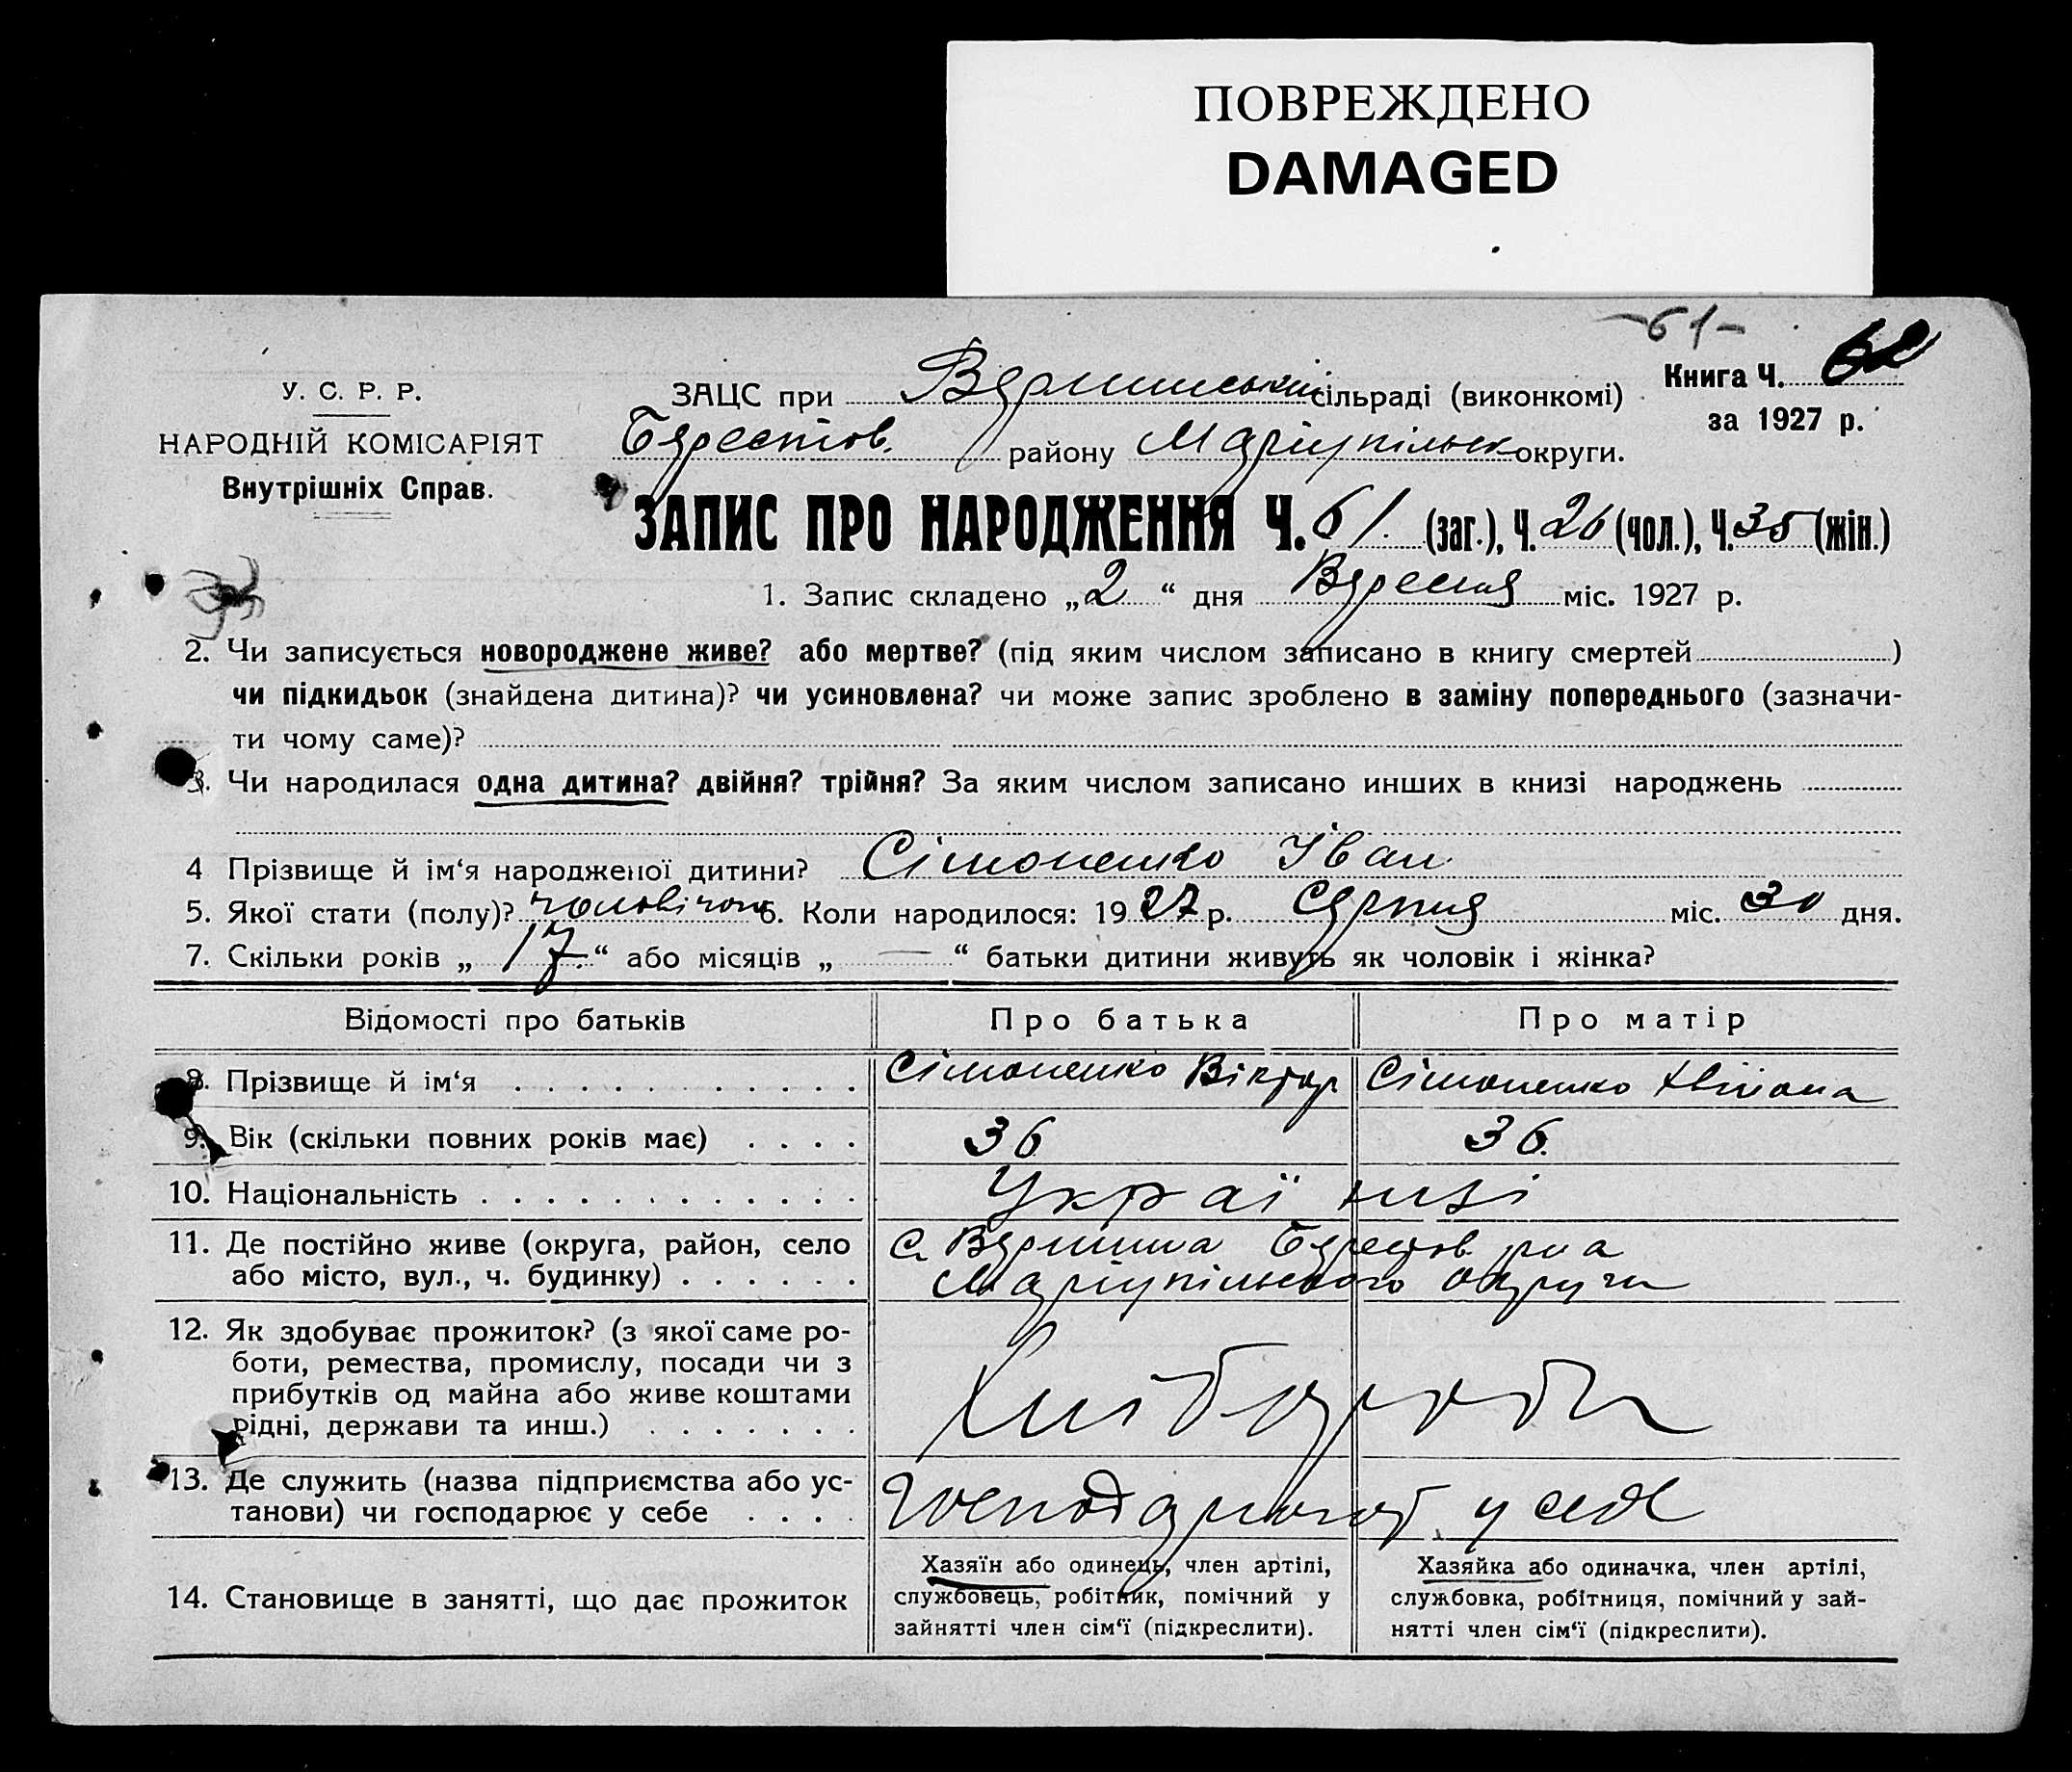 ПОВРЕЖДЕНО
DAMAGED
-61-
Книга Ч.
за 1927 р.
У. С. Р. Р.
НАРОДНІЙ КОМІСАРІЯТ
Внутрішніх Справ.
ЗАЦС при сільраді (виконкомі)
Берестов. району Маріупільськ округи.
ЗАПИС ПРО НАРОДЖЕННЯ Ч. 61. (заг.), Ч. 26 (чол.), Ч. 35 (жін.)
1. Запис складено „2“ дня Вересня міс. 1927 р.
2. Чи записується новороджене живе? або мертве? (під яким числом записано в книгу смертей )
чи підкидьок (знайдена дитина)? чи усиновлена? чи може запис зроблено в заміну попереднього (зазначи-
ти чому саме)?
3. Чи народилася одна дитина? двійня? трійня? За яким числом записано инших в книзі народжень
4 Прізвище й ім‘я народженої дитини? Сімоненко Іван
5. Якої стати (полу)? чоловічого 6. Коли народилося: 1927 р. Серпня міс. 30 дня.
7. Скільки років „17.“ або місяців „—“ батьки дитини живуть як чоловік і жінка?
Відомості про батьків Про батька Про матір
8. Прізвище й ім‘я Сімоненко Віктор Сімоненко
9. Вік (скільки повних років має) 36 36.
10. Національність Українці
11. Де постійно живе (округа, район, село С. Вершина Берестов. р-на
або місто, вул., ч. будинку) Маріупільського округи
12. Як здобуває прожиток? (з якої саме ро-
боти, ремества, промислу, посади чи з
прибутків од майна або живе коштами Хлібороби
рідні, держави та инш.)
13. Де служить (назва підприємства або ус-
танови) чи господарює у себе Господарюют у себе
14. Становище в занятті, що дає прожиток
Хазяїн або одинець, член артілі,
службовець, робітник, помічний у
зайнятті член сім‘ї (підкреслити).
Хазяйка або одиначка, член артілі,
службовка, робітниця, помічний у зай-
нятті член сім‘ї (підкреслити).